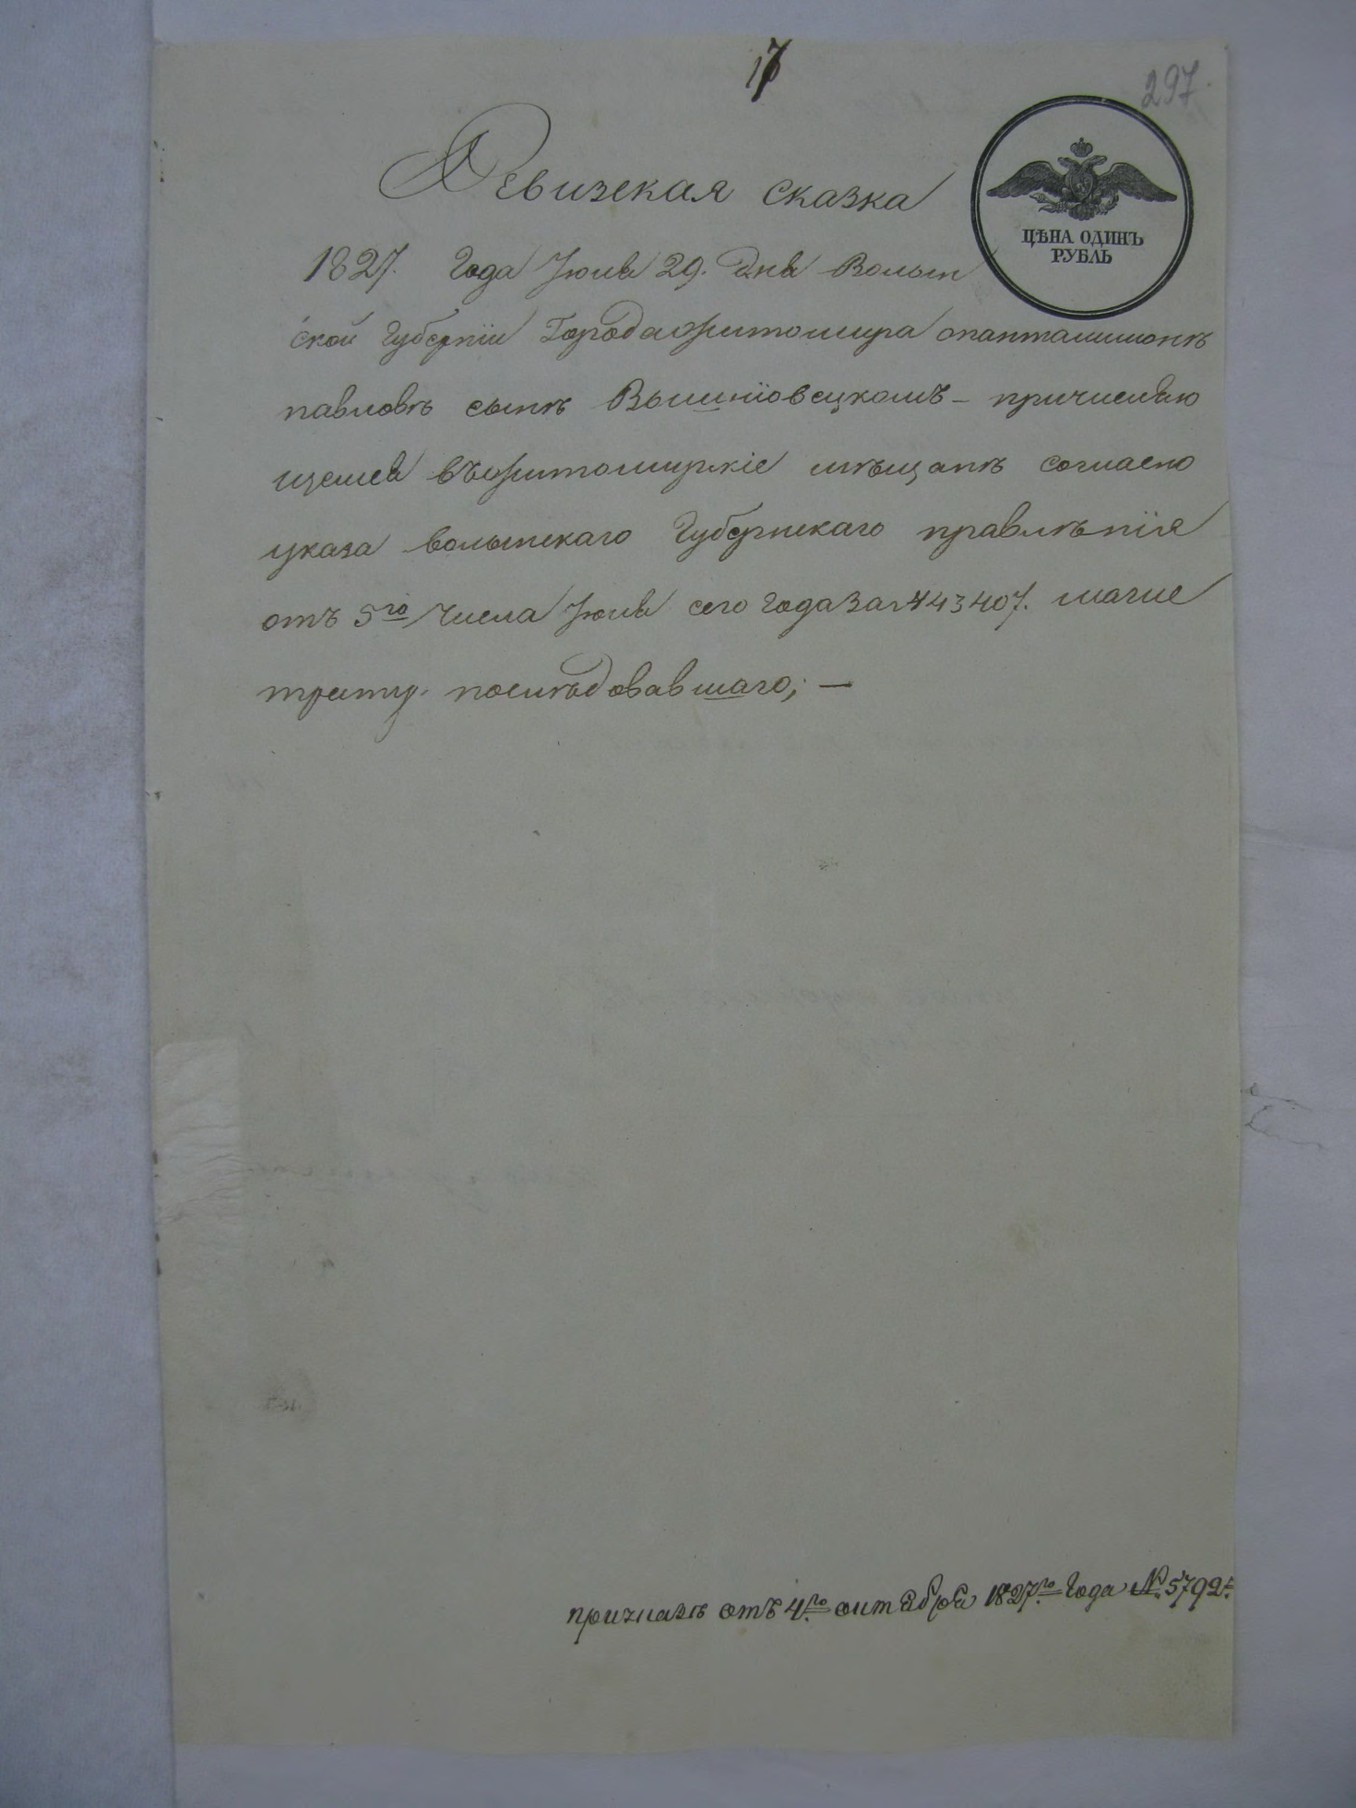 17
297.
Ревизская сказка
ЦѢНА ОДИНЪ
РУБЛЬ
1827. Года Июля 29. дня Волын
ской Губерніи Города Житомира опанталимонѣ
павловѣ сынѣ Вышніовецкомъ – причисляю
щемся въ Житомирскіе мѣщанѣ согласно
указа волынскаго Губернскаго правлѣнія
отъ 5го числа Июля сего Года За № 43407. магис
трату. послѣдовавшаго; —
приказъ отъ 4.го октября 1827.го Года №. 5792.